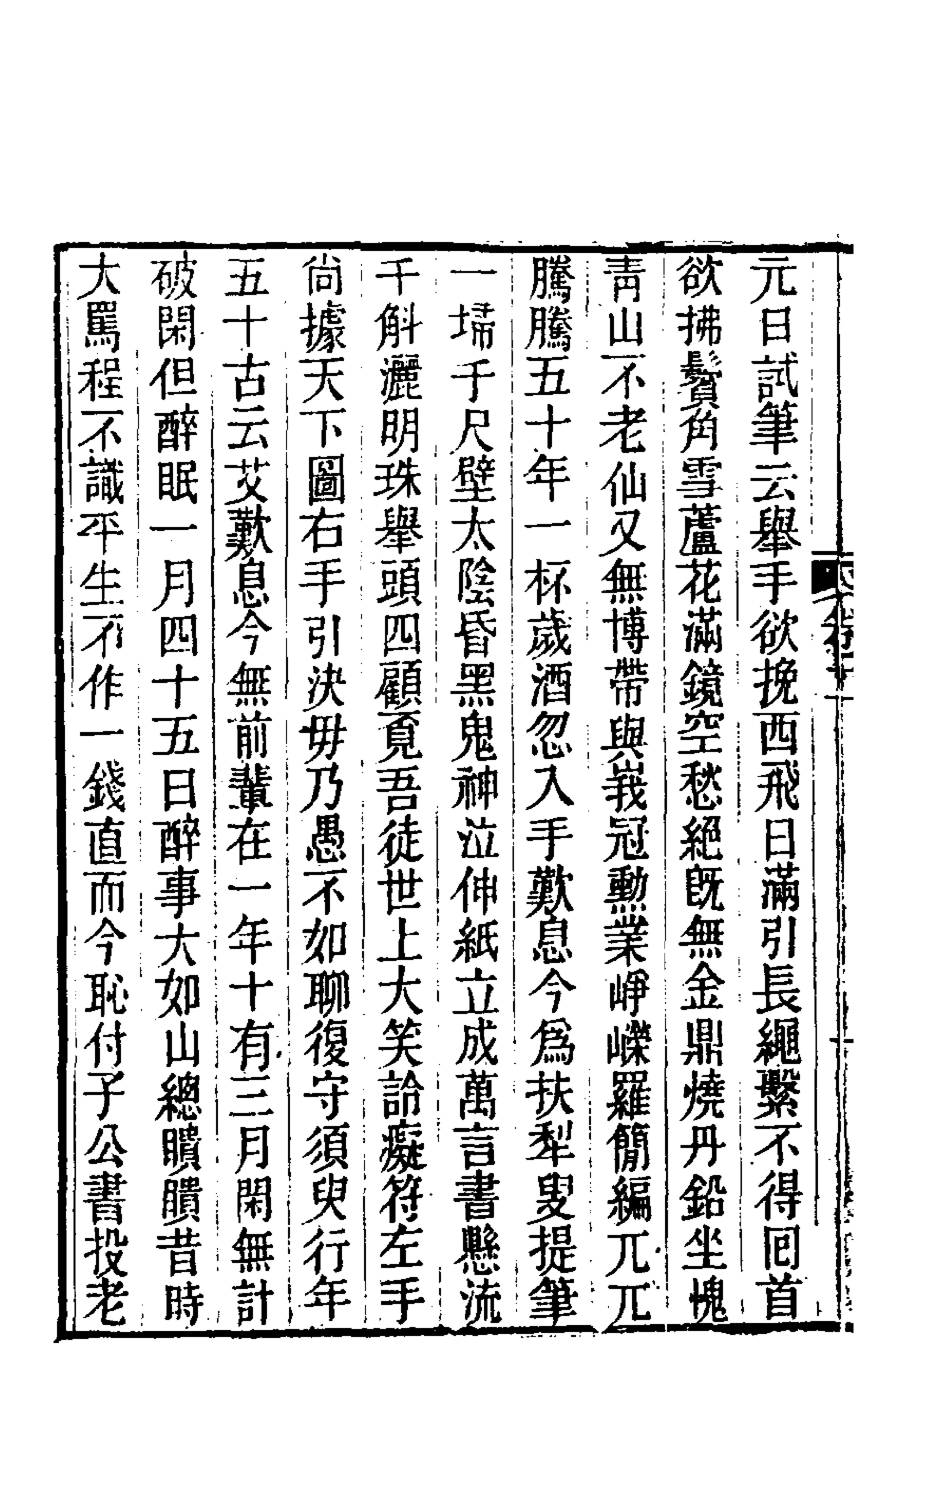 元日試筆云舉手欲挽西飛日滿引長繩繫不得囘首
欲拂鬢角雪蘆花滿鏡空愁絕旣無金鼎燒丹鉛坐愧
靑山不老仙又無博帶與峩冠勳業崢嶸羅簡編兀兀
騰騰五十年一杯歲酒忽入手歎息今爲扶犁叟提筆
一埽千尺壁太陰昏黑鬼神泣伸紙立成萬言書懸流
千斛灑明珠舉頭四顧覔吾徒世上大笑詅癡符左手
尙據天下圖右手引決毋乃愚不如聊復守須臾行年
五十古云艾歎息今無前輩在一年十有三月閑無計
破閑但醉眠一月四十五日醉事大如山總瞶瞶昔時
大罵程不識平生不作一錢直而今恥付子公書投老